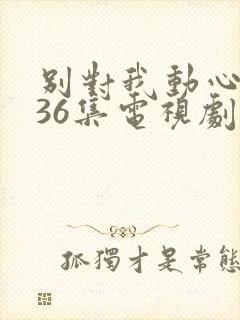 別對我動心
36集電視劇
孤獨才是常態